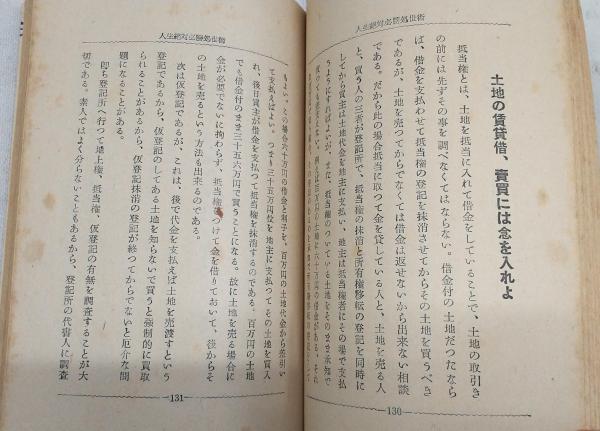 人生絶対必勝処世術
土地の賃貸借、賣買には念を入れよ
抵当権とは、土地を抵当に入れて借金をしていることで、土地の取引き
の前には先ずその事を調べなくてはならない。借金付の土地だつたなら
ば、借金を支払わせて抵当権の登記を抹消させてからその土地を買うべき
であるが、土地を売つてからでなくては借金は返せないから出来ない相談
である。だから此の場合抵当に取つて金を貸している人と、土地を売る人
と、買う人の三者が登記所で、抵当権の抹消と所有権移転の登記を同時に
してから買主は土地代金を地主に支払い、地主は抵当権者にその場で支払
うようにすればよいが、また、抵当権のついている土地をそのまま承知で
130
人生絶対必勝処世術
もよい。この場合六十万円の借金と利子を、百万円の土地代金から差引い
て支払えばよい。つまり三十五万円位を地主に支払つてその土地を買入
れ、後日買主が借金を支払って抵当権を抹消するのである。百万円の土地
でも借金付のまま三十五六万円で買うことになる。故に土地を売る場合に
金が必要でないに拘わらず、抵当権をつけて金を借りておいて、後からそ
の土地を売るという方法も出来るのである。
次は仮登記であるが、これは、後で代金を支払えば土地を売渡すという
登記であるから、仮登記のしてある土地を知らないで買うと強制的に買取
られることがあるから、仮登記抹消の登記が終つてからでないと厄介な問
題になることがある。
即ち登記所へ行つて地上権、抵当権、仮登記の有無を調査することが大
切である。素人ではよく分らないこともあるから、登記所の代書人に調査
131